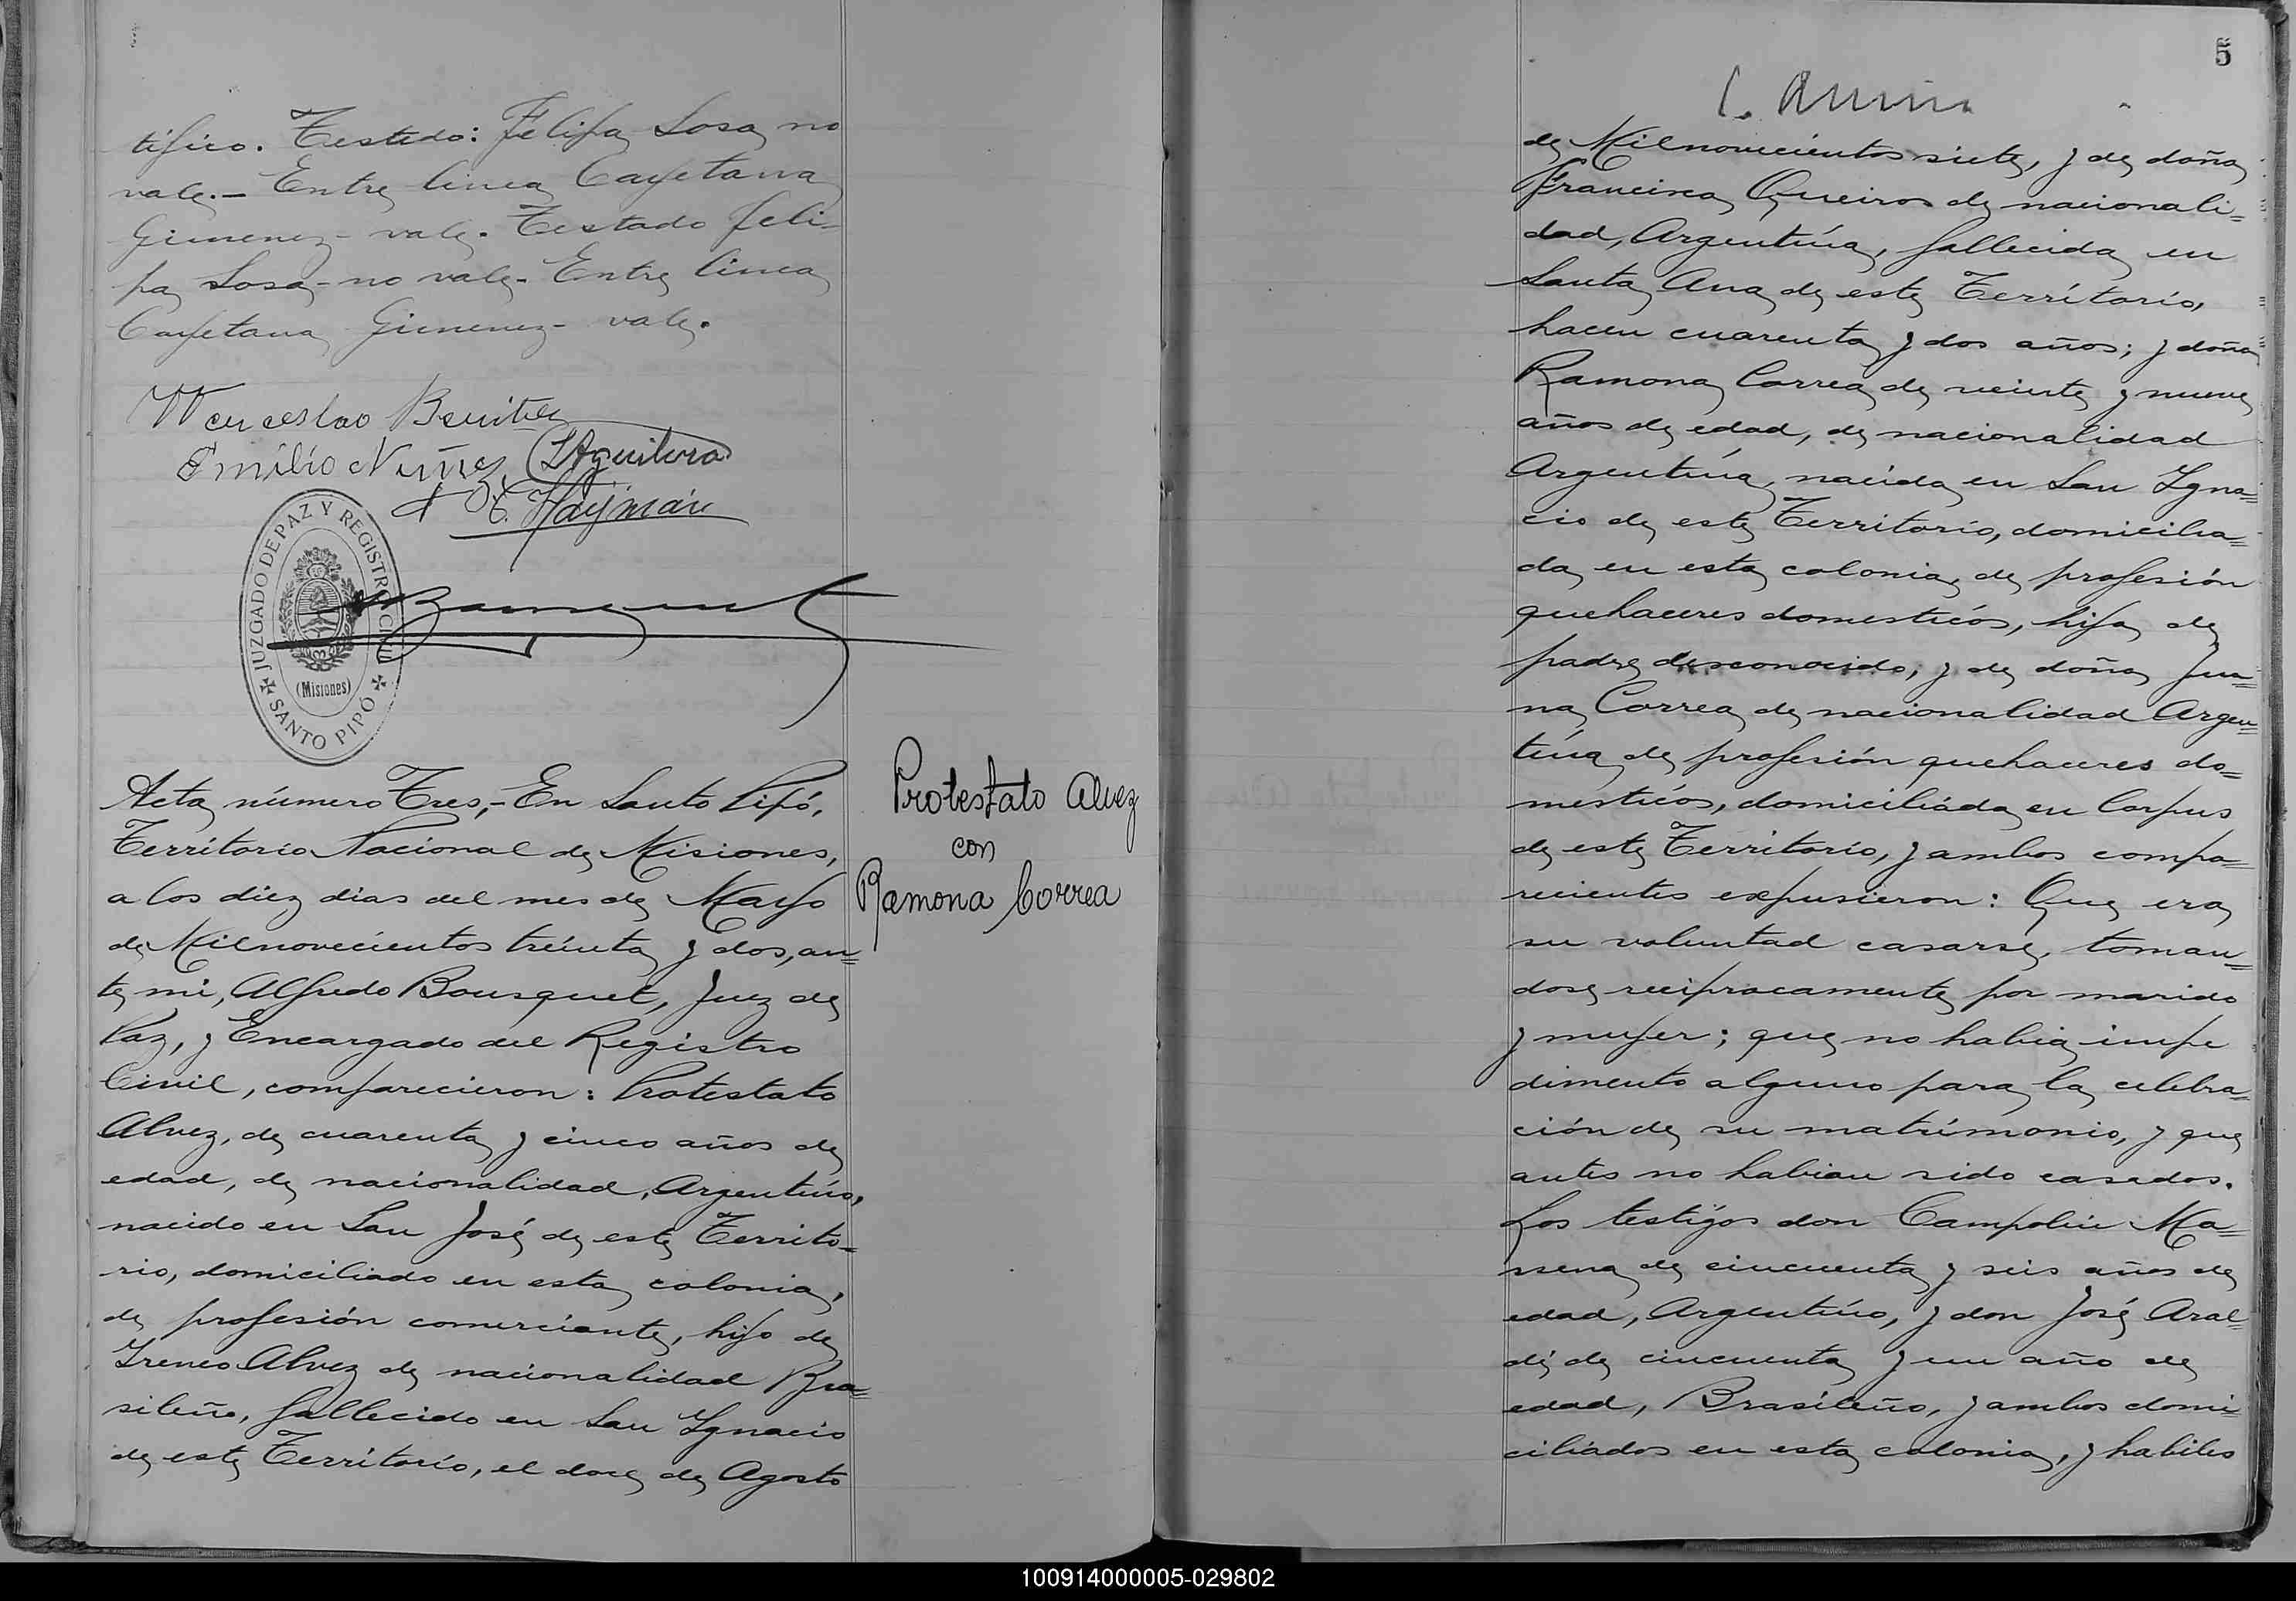 tifico. Testado: Felipa Sosa no
vale.- Entre linea Cayetana
Gimenez - vale. Testado Feli-
pa Sosa - no vale- Entre linea
Cayetana Gimenez - vale.
Wenceslao Benitez
Emilio Nuñez LAguilera
Haÿmán
JUZGADO DE PAZ Y REGISTRO CIVIL
(Misiones)
SANTO PIPÓ
Acta número Tres,- En Santo Pipó,
Territorio Nacional de Misiones,
a los diez dias del mes de Mayo
de Milnovecientos treinta y dos, an=
te mi, Alfredo Bousquet, Juez de
Paz, y Encargado del Registro
Civil, comparecieron: Protestato
Alvez, de cuarenta y cinco años de
edad, de nacionalidad, Argentino,
nacido en San José de este Territo=
rio, domiciliado en esta colonia,
de profesión comerciante, hijo de
Ireneo Alvez de nacionalidad Bra=
sileño, fallecido en San Ignacio
de este Territorio, el doce de Agosto
Protestato Alvez
con
Ramona Correa
5
de Milnovecientos siete, y de doña
Francisca Queiros de nacionali=
dad, Argentina, fallecida en
Santa Ana de este Territorio,
hacen cuarenta y dos años; y doña
Ramona Correa de veinte y nueve
años de edad, de nacionalidad
Argentina, nacida en San Igna=
cio de este Territorio, domicilia=
da en esta colonia, de profesión
quehaceres domesticós, hija de
padre desconocido, y de doña Jua=
na Correa de nacionalidad Argen=
tina de profesión quehaceres do=
mesticós, domiciliada en Corpus
de este Territorio, y ambos compa=
recientes expusieron: Que era
su voluntad casarse, toman=
dose reciprocamente por marido
y mujer; que no habia impe
dimento alguno para la celebra=
ción de su matrimonio, y que
antes no habian sido casados.
Los testigos don Campolin Ma=
ssena de cincuenta y seis años de
edad, Argentino, y don José Aral=
di de cincuenta y un año de
edad, Brasileño, y ambos domi=
ciliados en esta colonia, y habiles
100914000005-029802